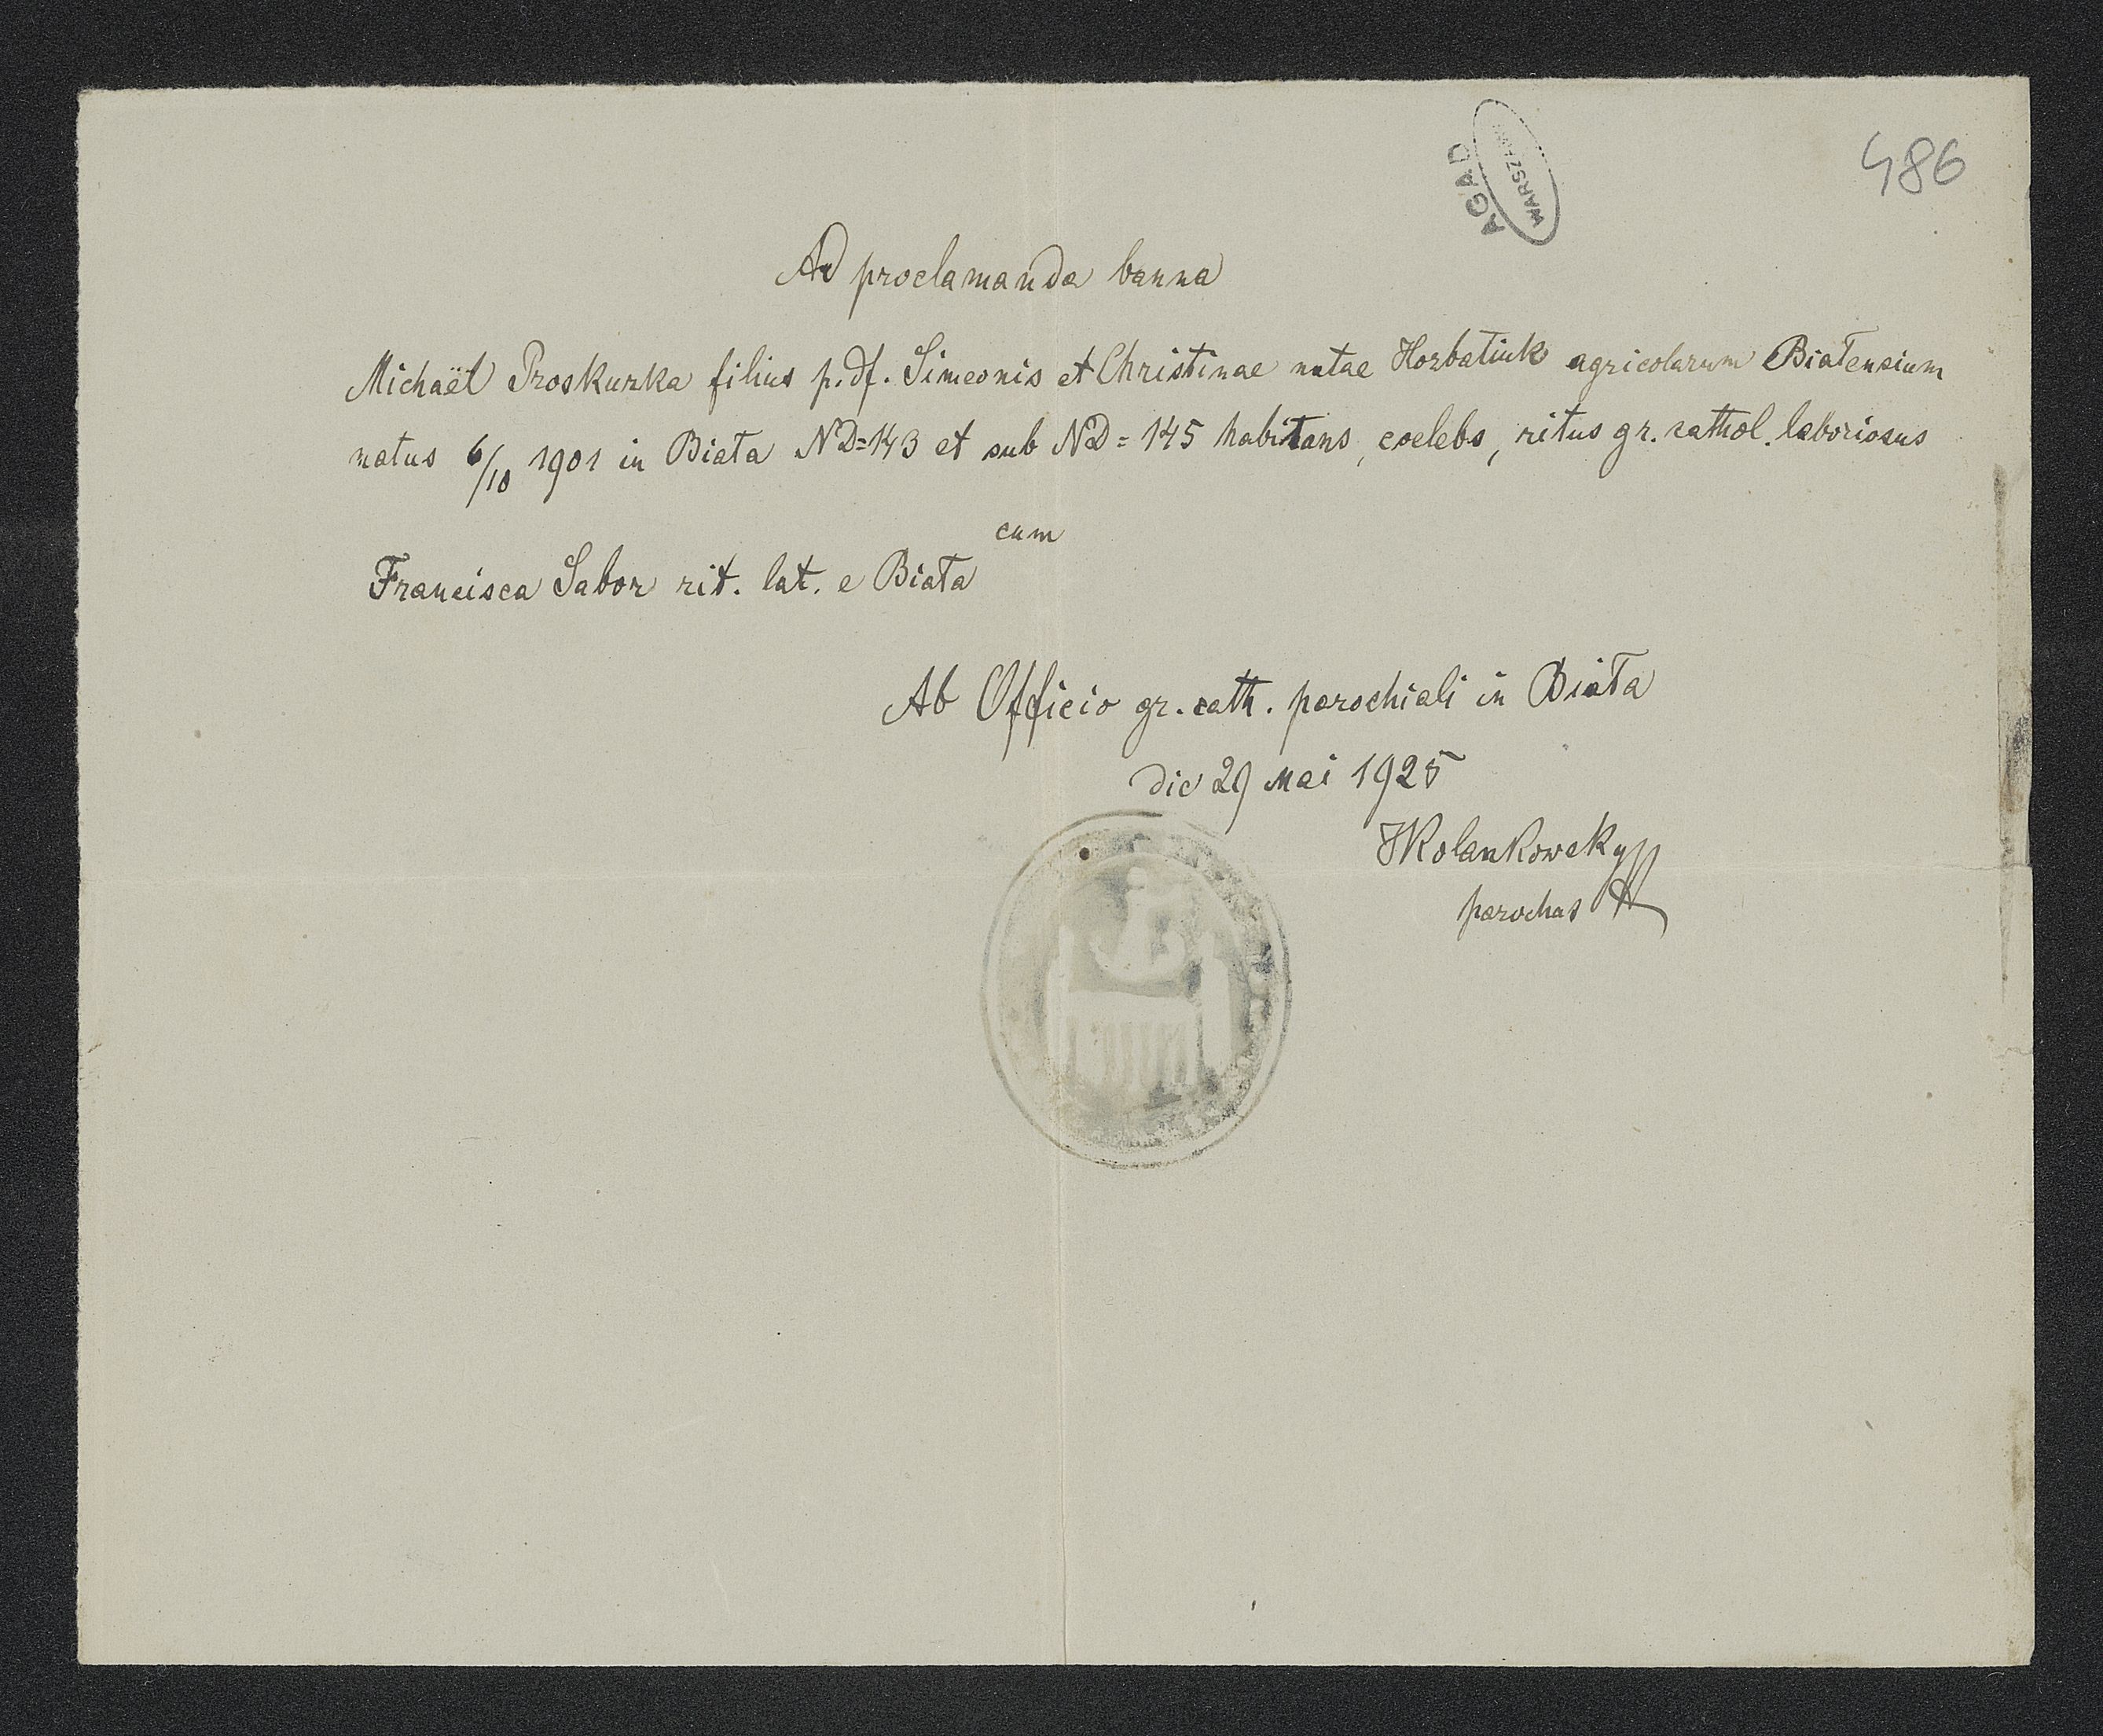 486
AGAD
WARSZAWA
Ad proclamanda banna
Michaël Proskurka filius p. df. Simeonis et Christinae natae Horbatiuk agricolarum Białensium
natus 6/10 1901 in Biała ND=143 et sub ND=145 habitans, coelebs, ritus gr. cathol. laboriosus
cum
Francisca Sabor rit. lat. e Biała
Ab Officio gr. cath. parochiali in Biała
die 29 Mai 1925
parochus